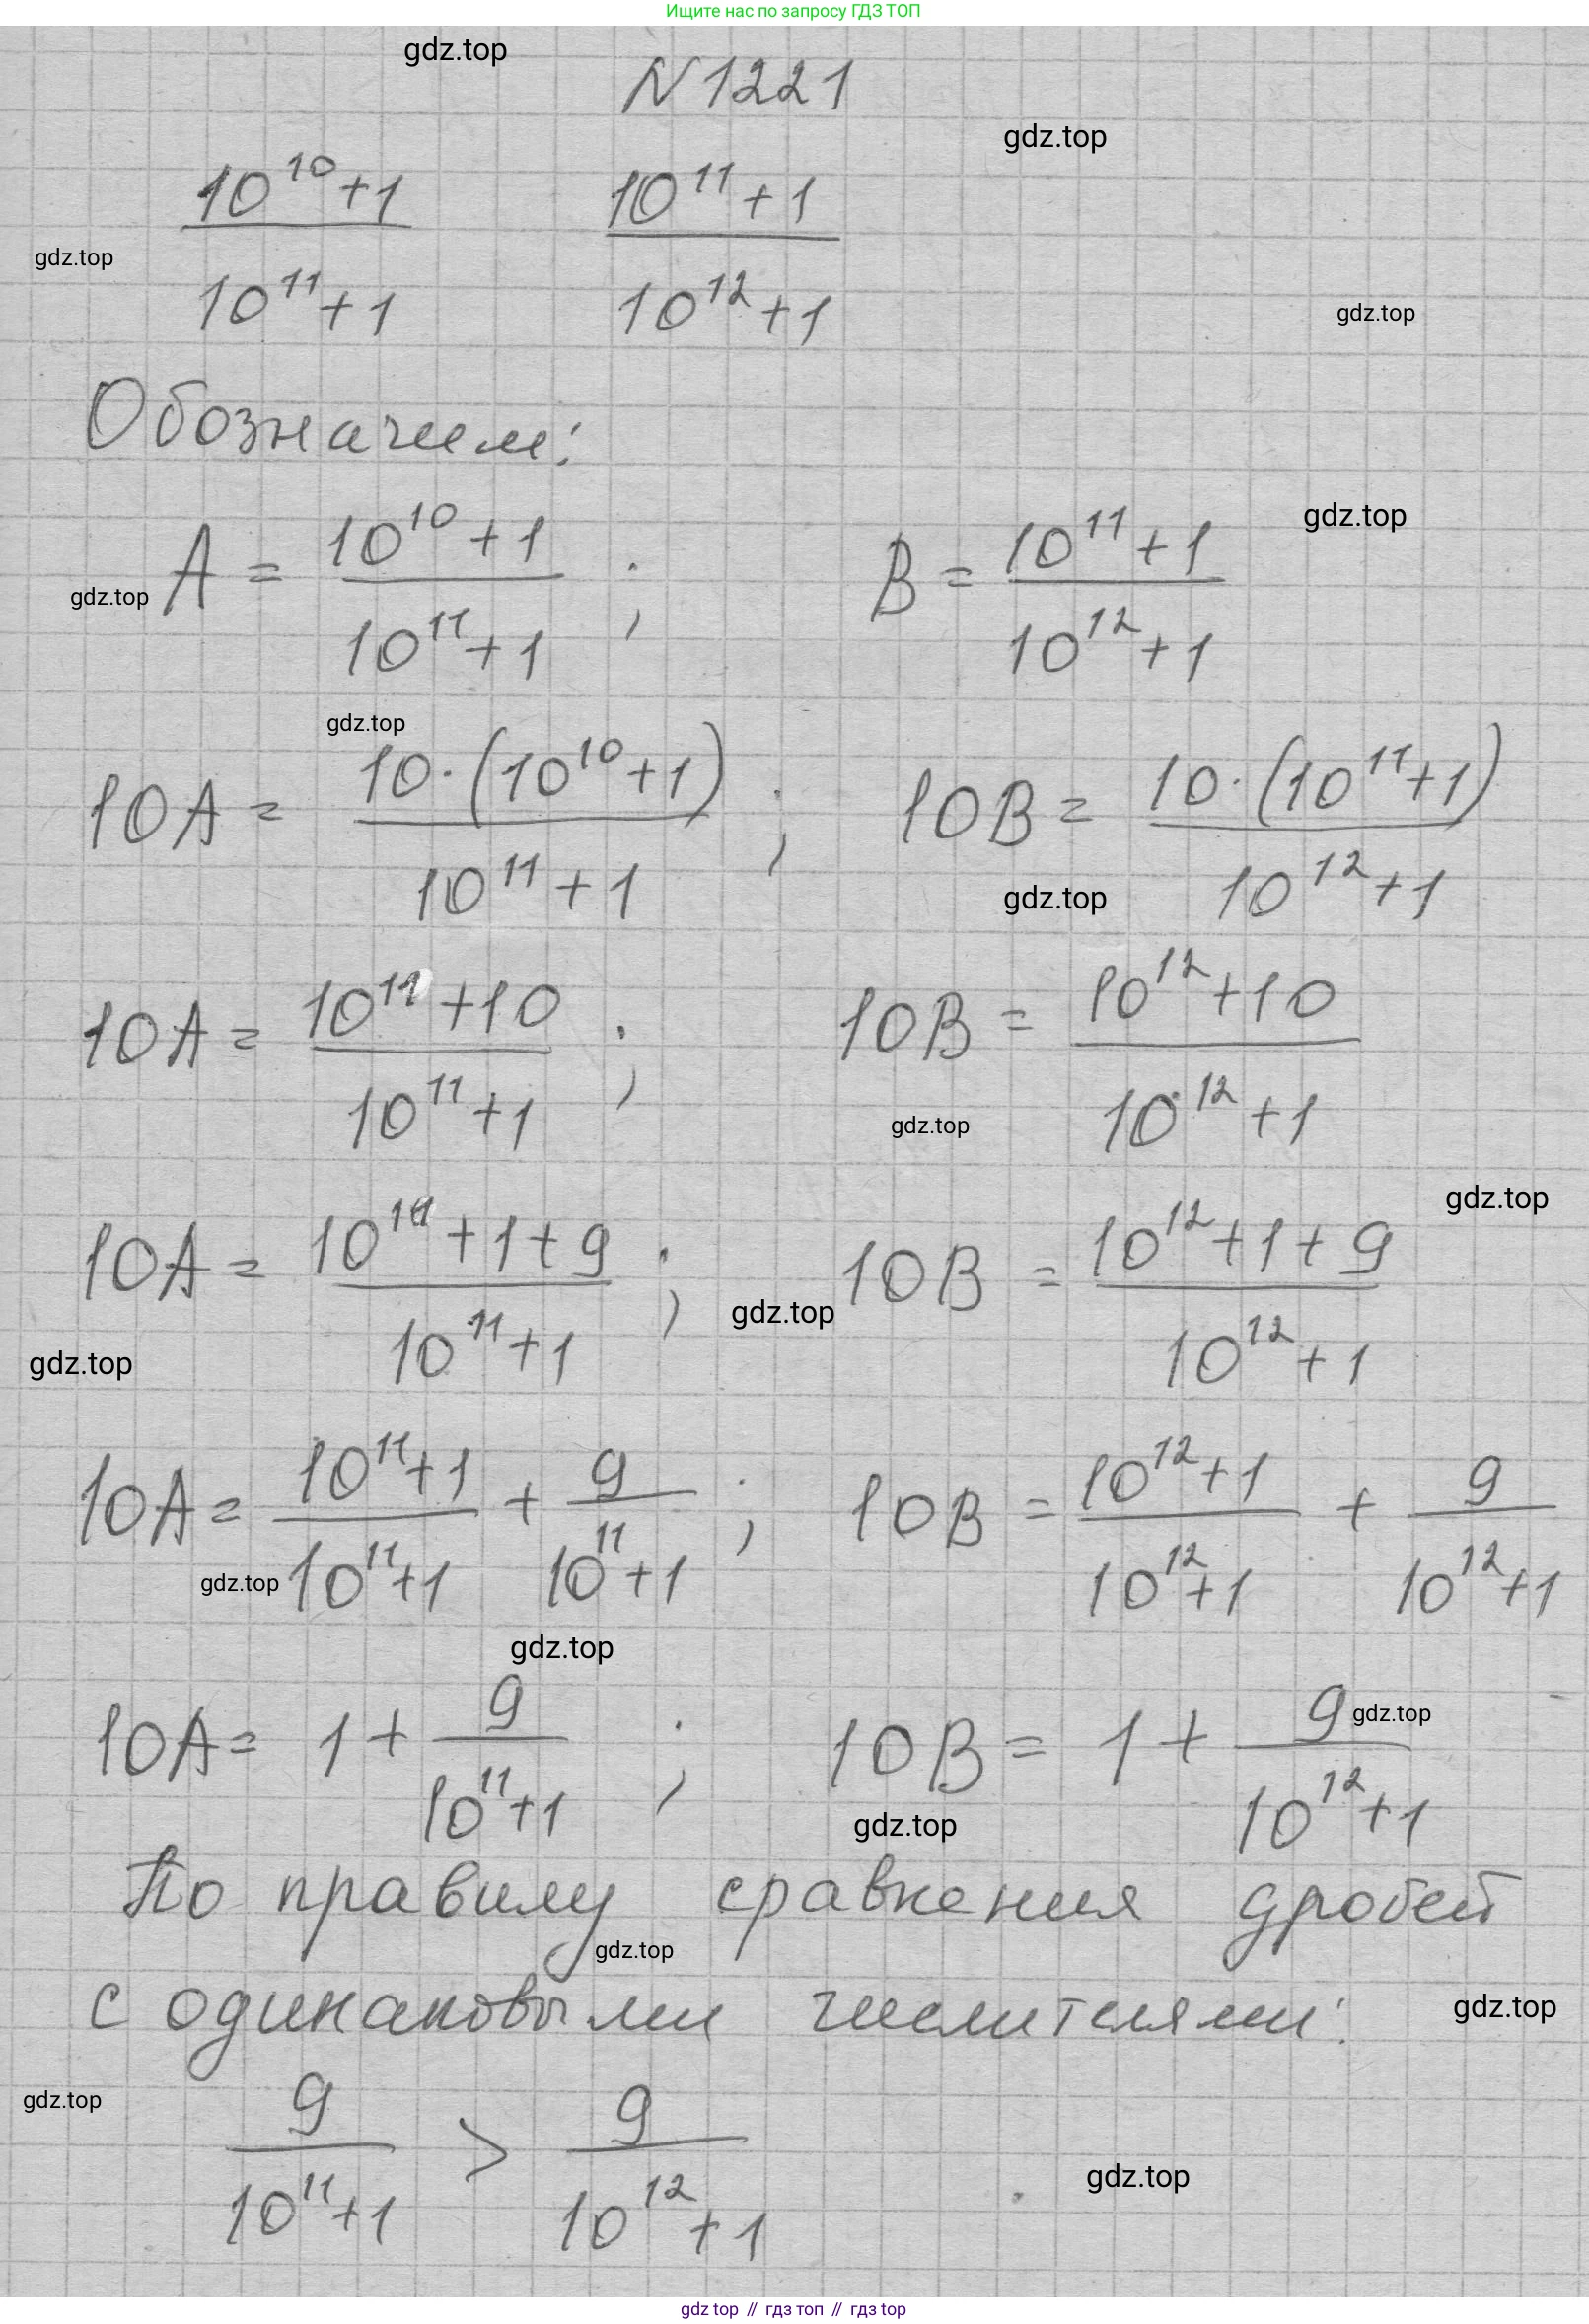 Ищите нас по запросу ГДЗ ТОП
gdz.top
N 1221
gdz.top
(10^10 + 1)/(10^11 + 1)    (10^11 + 1)/(10^12 + 1)
gdz.top
gdz.top
Обозначим:
gdz.top
A = (10^10 + 1)/(10^11 + 1) ;    B = (10^11 + 1)/(10^12 + 1)
gdz.top
gdz.top
10A = 10·(10^10 + 1)/(10^11 + 1) ;    10B = 10·(10^11 + 1)/(10^12 + 1)
gdz.top
10A = (10^11 + 10)/(10^11 + 1) ;    10B = (10^12 + 10)/(10^12 + 1)
gdz.top
gdz.top
10A = (10^11 + 1 + 9)/(10^11 + 1) ;    10B = (10^12 + 1 + 9)/(10^12 + 1)
gdz.top
gdz.top
10A = (10^11 + 1)/(10^11 + 1) + 9/(10^11 + 1) ;    10B = (10^12 + 1)/(10^12 + 1) + 9/(10^12 + 1)
gdz.top
gdz.top
gdz.top
10A = 1 + 9/(10^11 + 1) ;    10B = 1 + 9/(10^12 + 1)
gdz.top
По правилу сравнения дробей
gdz.top
с одинаковыми числителями:
gdz.top
gdz.top
9/(10^11 + 1) > 9/(10^12 + 1)
gdz.top
gdz top // гдз топ // gdz top